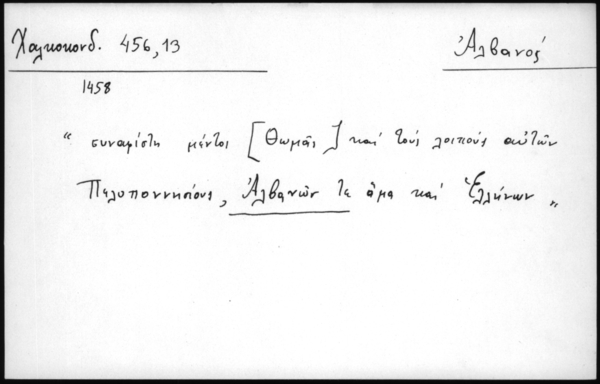 Χαλκοκονδ. 456,13
Ἀλβανός
1458
“ συναφίστη μέντοι [Θωμᾶς] καὶ τοὺς λοιποὺς αὐτῶν
Πελοποννησίους, Ἀλβανῶν τε ἅμα καὶ Ἑλλήνων „